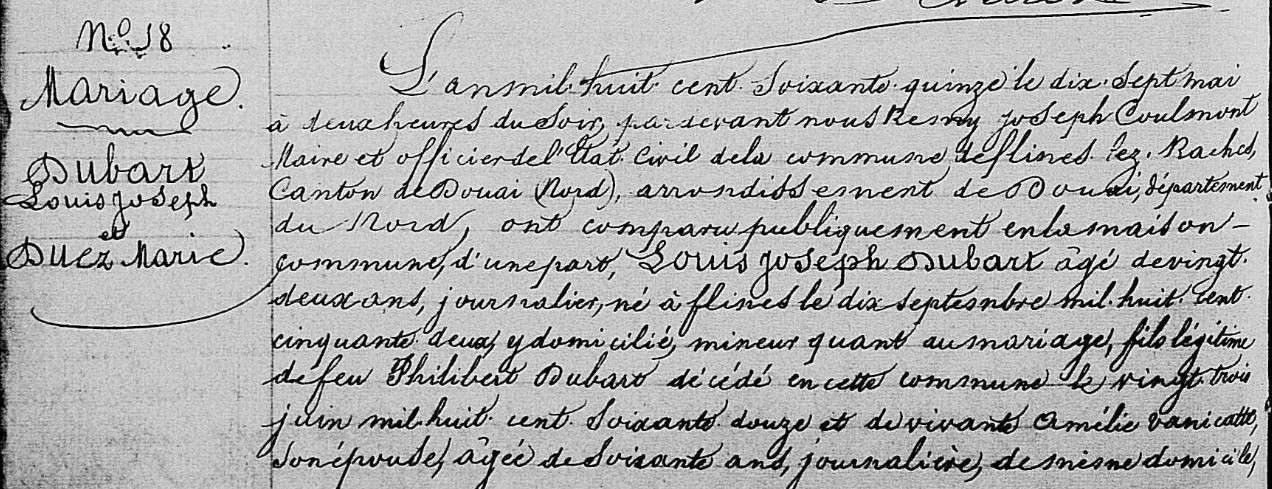 N° 18
Mariage.
Dubart
Louis Joseph
et
Duez Marie.
L'an mil-huit-cent-soixante-quinze le dix-sept mai
à deux heures du soir, par devant nous Remy Joseph Coulmont
Maire et officier de l'Etat-Civil de la commune de flines-lez-Raches,
Canton de Douai (Nord), arrondissement de Douai, département
du Nord, ont comparu publiquement en la maison-
commune, d'une part, Louis Joseph Dubart âgé de vingt-
deux ans, journalier, né à flines le dix septembre mil-huit-cent-
cinquante-deux, y domicilié, mineur quant au mariage, fils légitime
de feu Philibert Dubart décédé en cette commune le vingt-trois
juin mil-huit-cent-soixante-douze et de vivante Amélie Vanicatte,
son épouse, âgée de soixante ans, journalière, de même domicile,